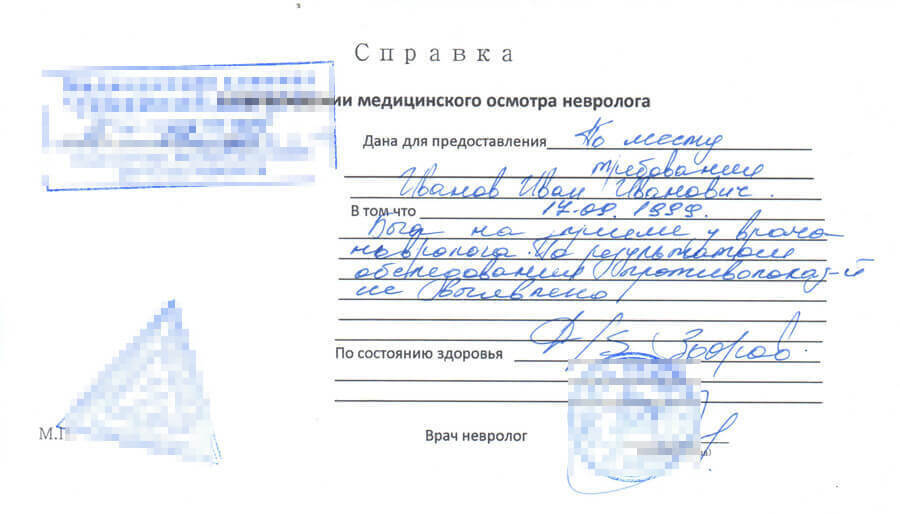 Справка
нии медицинского осмотра невролога
Дана для предоставления По месту
требования
Иванов Иван Иванович.
В том что 17.09.1999.
Был на приеме у врача
невролога. По результатам
обследования противопоказ-й
не выявлено
По состоянию здоровья Д/з Здоров.
М.П
Врач невролог